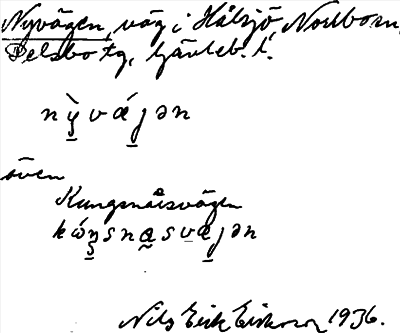 Nyvägen, väg i Hålsjö, Norrbo sn,
Delsbo tg, Gävleb. l.
nỳvájən
även
Kungsnäsvägen
kóŋsnasvajən
Nils Erik Eriksson 1936.